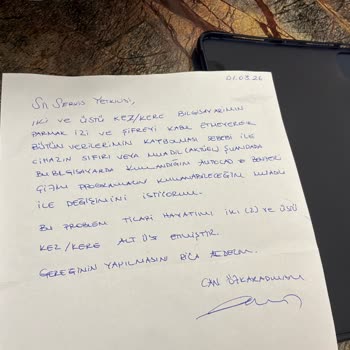 01.03.26
Sn Servis Yetkilisi,
İKİ VE ÜSTÜ KEZ/KERE BİLGİSAYARIMIN
PARMAK İZİ VE ŞİFREYİ KABUL ETMEYEREK
BÜTÜN VERİLERİMİN KAYBOLMASI SEBEBİ İLE
CİHAZIN SIFIRI VEYA MUADİL (AKTÜEL) ŞUMULDA
BU BİLGİSAYARDA KULLANDIĞIM AUTOCAD VE BENZER
ÇİZİM PROGRAMLARIN KULLANABİLECEĞİM MUADİL
İLE DEĞİŞİMİNİ İSTİYORUM.
BU PROBLEM TİCARİ HAYATIMI İKİ (2) VE ÜSTÜ
KEZ/KERE ALT ÜST ETMİŞTİR.
GEREĞİNİN YAPILMASINI RİCA EDERİM.
CAN